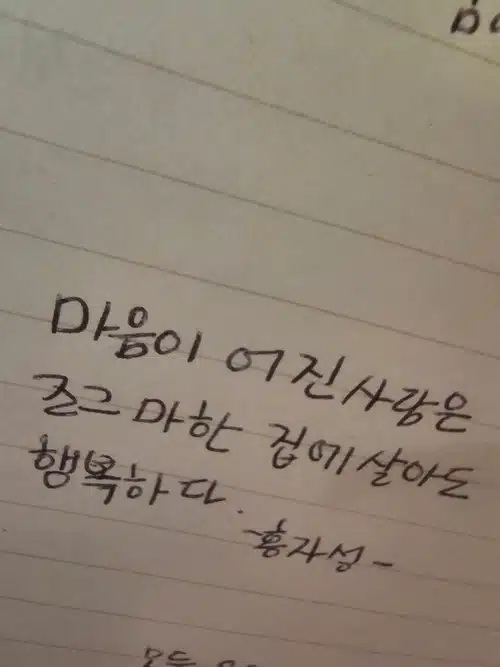 마음이 어진사람은
조그마한 집에살아도
행복하다.
-홍자성-
모든